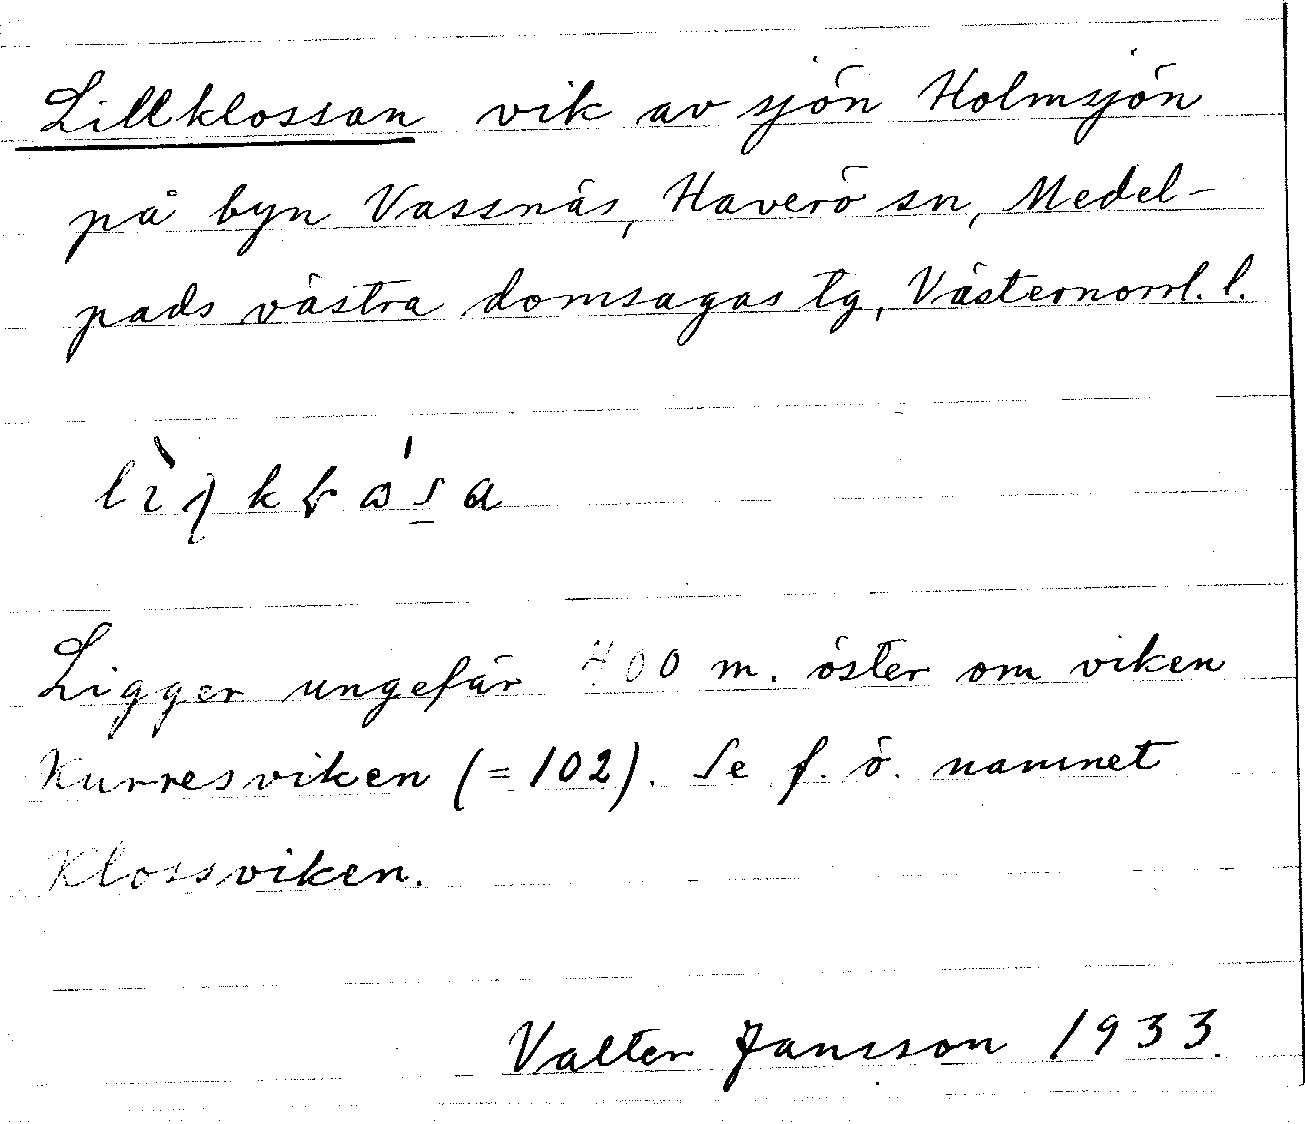 Lillklossan vik av sjön Holmsjön
på byn Vassnäs, Haverö sn, Medel-
pads västra domsagas tg, Västernorrl. l.
Ligger ungefär 400 m. öster om viken
Kurresviken (=102). Se f. ö. namnet
Klossviken.
Valter Jansson 1933.